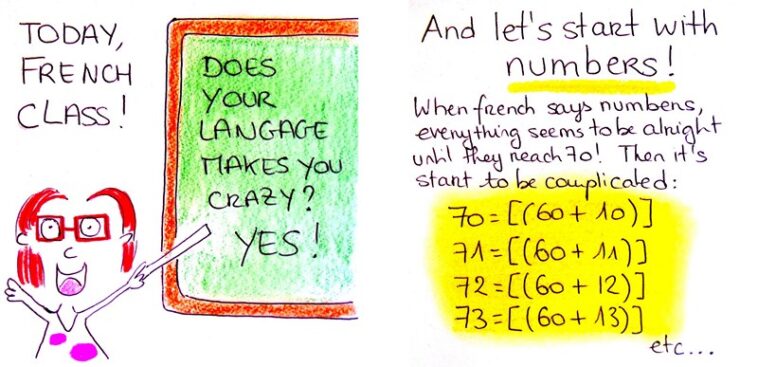 TODAY,
FRENCH
CLASS!
DOES
YOUR
LANGAGE
MAKES YOU
CRAZY?
YES!
And let's start with
numbers!
When french says numbers,
everything seems to be alright
until they reach 70! Then it's
start to be complicated:
70=[(60+10)]
71=[(60+11)]
72=[(60+12)]
73=[(60+13)]
etc...